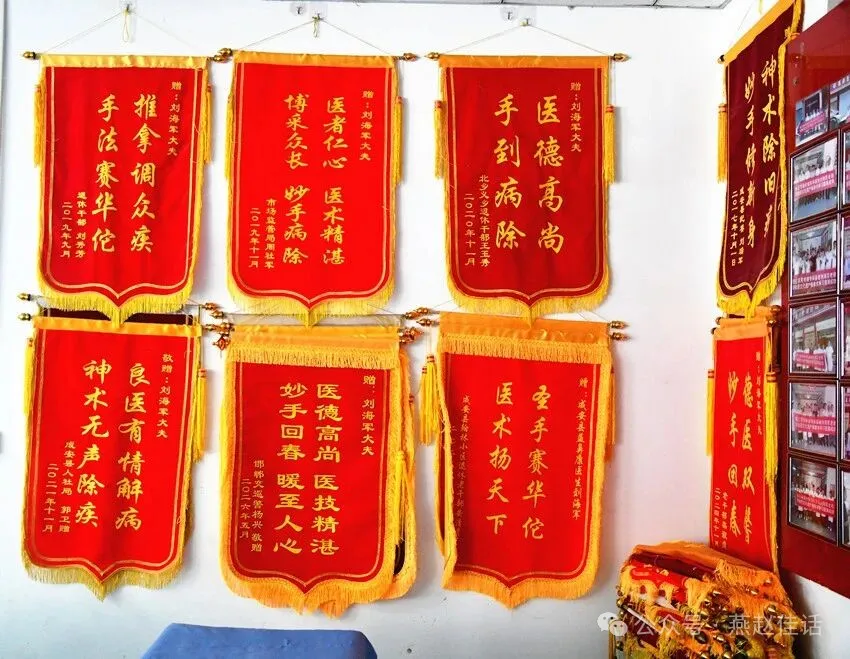 赠：刘海军大夫
推拿调众疾
手法赛华佗
退休干部 刘秀芳
二〇一九年九月
赠：刘海军大夫
医者仁心 医术精湛
博采众长 妙手病除
市场监管局周社军
二〇一九年十一月
赠：刘海军大夫
医德高尚
手到病除
北乡义乡退休干部王玉秀
二〇二〇年十一月
神术除旧疾
妙手付新身
二〇一七年十月一日
敬赠：刘海军大夫
良医有情解病
神术无声除疾
成安县人社局 郭卫赠
二〇二一年十一月
赠：刘海军大夫
医德高尚 医技精湛
妙手回春 暖至人心
邯郸交巡警杨兴 敬赠
二〇二六年五月
赠：成安县益康医生刘海军
圣手赛华佗
医术扬天下
赠：刘海军大夫
德医双馨
妙手回春
公众号 · 燕赵佳话